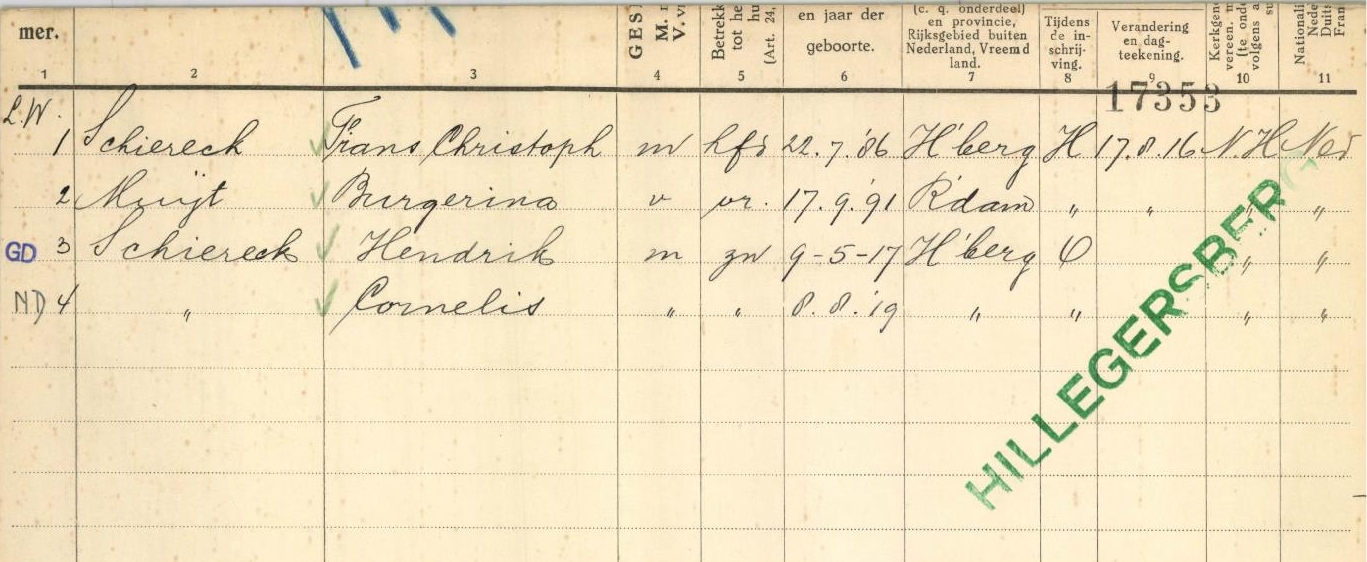 mer.
GES
M.
V.
Betrekk
tot he
hu
(Art. 24,
en jaar der
geboorte.
(c. q. onderdeel)
en provincie,
Rijksgebied buiten
Nederland, Vreemd
land.
Tijdens
de in-
schrij-
ving.
Verandering
en dag-
teekening.
Kerkgen
vereen. m
(te onde
volgens a
su
Nationali
Nede
Duits
Fran
1 2 3 4 5 6 7 8 9 10 11
17353
L.W.
1 Schiereck Frans Christoph m hfd 22.7.'86 H'berg H 17.8.16 N.H Ned
2 Muijt Burgerina v vr. 17.9.'91 R'dam " " " "
GD 3 Schiereck Hendrik m zn 9-5-17 H'berg O " "
ND 4 " Cornelis " " 8.8.'19 " " " "
HILLEGERSBERG